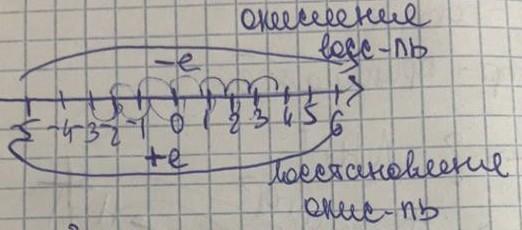 окисление
восс-ль
-е
-5 -4 -3 -2 -1 0 1 2 3 4 5 6
+е
восстановление
окис-ль